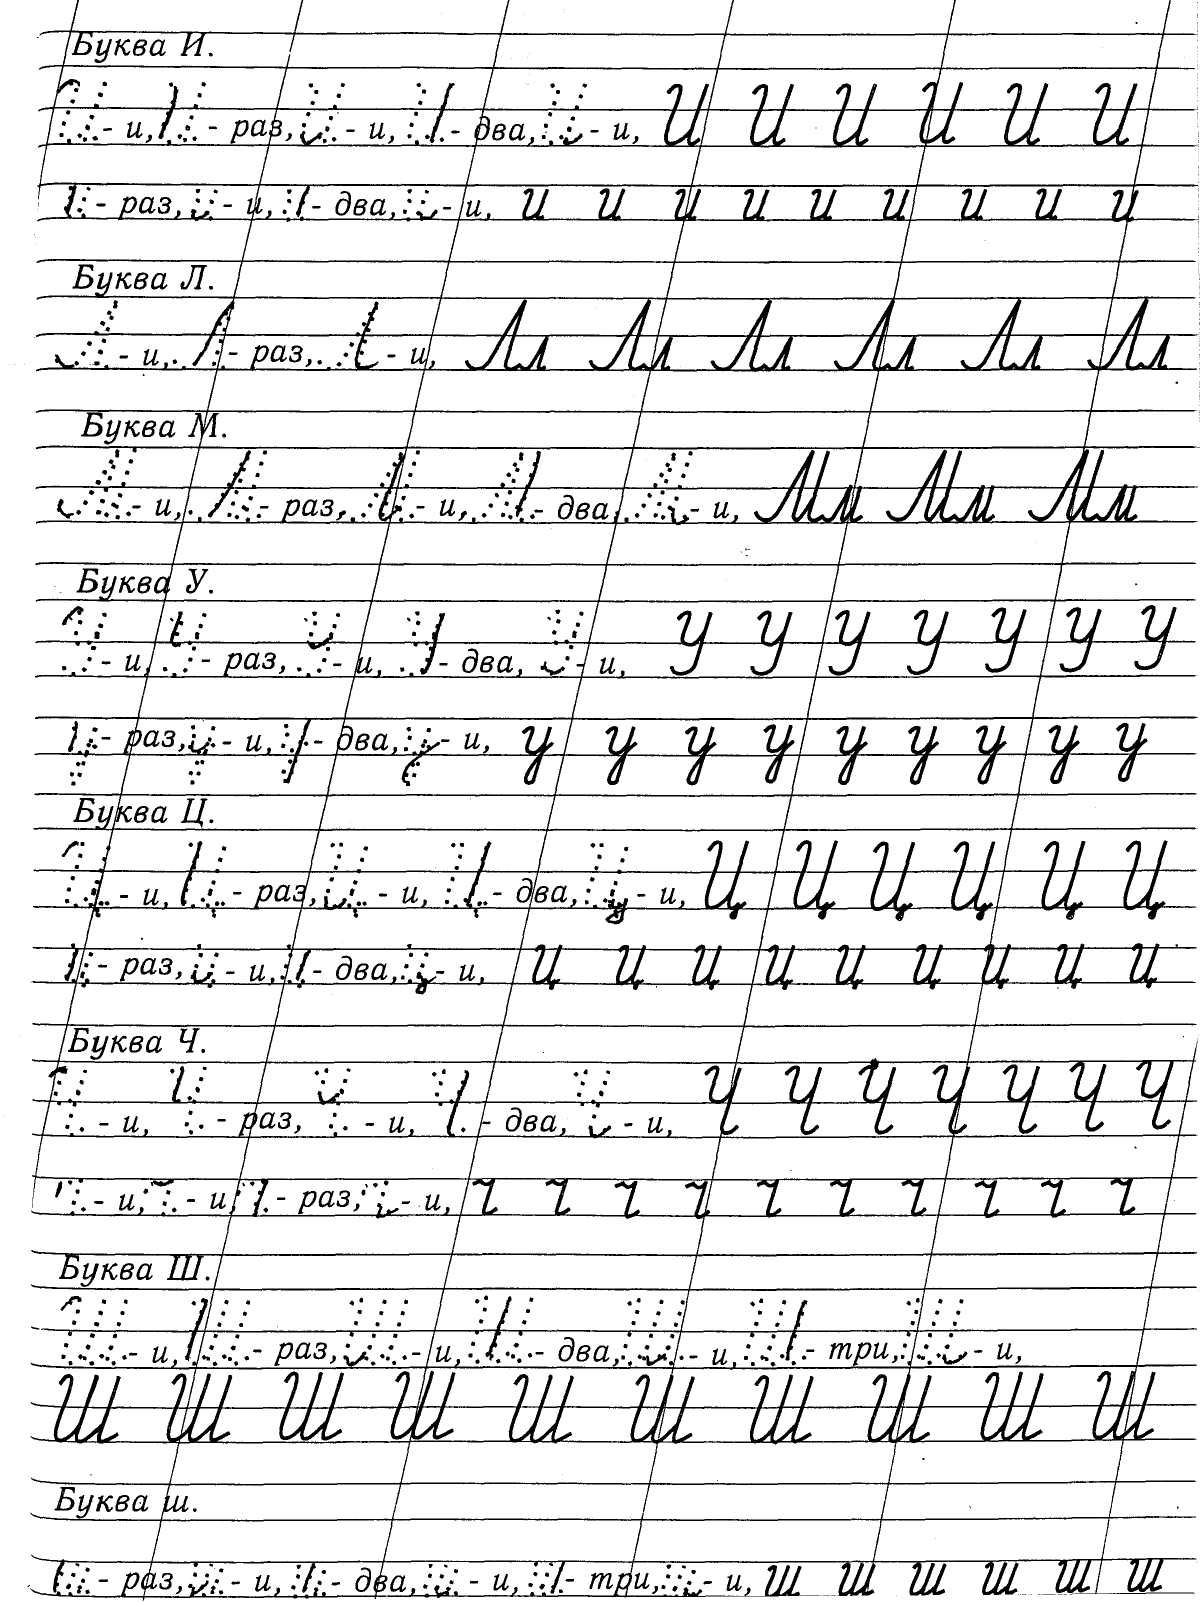 Буква И.
- и, - раз, - и, - два, - и, И И И И И И
- раз, - и, - два, - и, и и и и и и и и и
Буква Л.
- и, - раз, - и, Лл Лл Лл Лл Лл Лл
Буква М.
- и, - раз, - и, - два, - и, Мм Мм Мм
Буква У.
- и, - раз, - и, - два, - и, У У У У У У У
- раз, - и, - два, - и, у у у у у у у у у
Буква Ц.
- и, - раз, - и, - два, - и, Ц Ц Ц Ц Ц Ц
- раз, - и, - два, - и, ц ц ц ц ц ц ц ц ц
Буква Ч.
- и, - раз, - и, - два, - и, Ч Ч Ч Ч Ч Ч Ч
- и, - и, - раз, - и, ч ч ч ч ч ч ч ч ч ч
Буква Ш.
- и, - раз, - и, - два, - и, - три, - и,
Ш Ш Ш Ш Ш Ш Ш Ш Ш Ш
Буква ш.
- раз, - и, - два, - и, - три, - и, ш ш ш ш ш ш